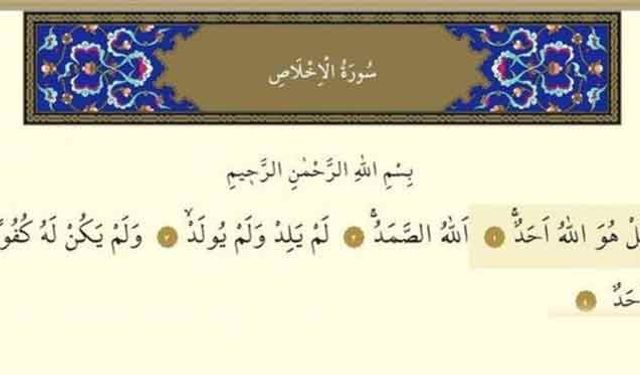 سُورَةُ الْاِخْلَاصِ
بِسْمِ اللّٰهِ الرَّحْمٰنِ الرَّح۪يمِ
هُوَ اللّٰهُ اَحَدٌۚ ﴿١﴾ اَللّٰهُ الصَّمَدُۚ ﴿٢﴾ لَمْ يَلِدْ وَلَمْ يُولَدْۙ ﴿٣﴾ وَلَمْ يَكُنْ لَهُ
﴿٤﴾